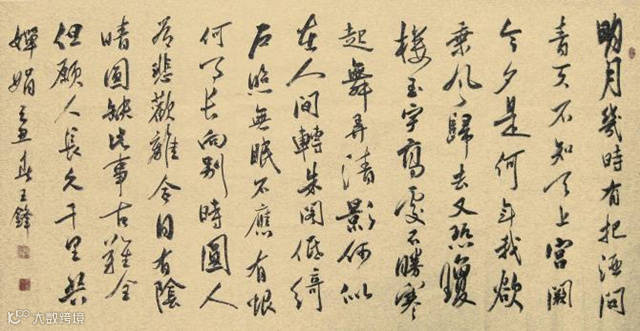 明月幾時有把酒問
青天不知天上宮闕
今夕是何年我欲
乘風歸去又恐瓊
樓玉宇高處不勝寒
起舞弄清影何似
在人間轉朱閣低綺
戶照無眠不應有恨
何事長向別時圓人
有悲歡離合月有陰
晴圓缺此事古難全
但願人長久千里共
嬋娟 春王鋒
大数跨境